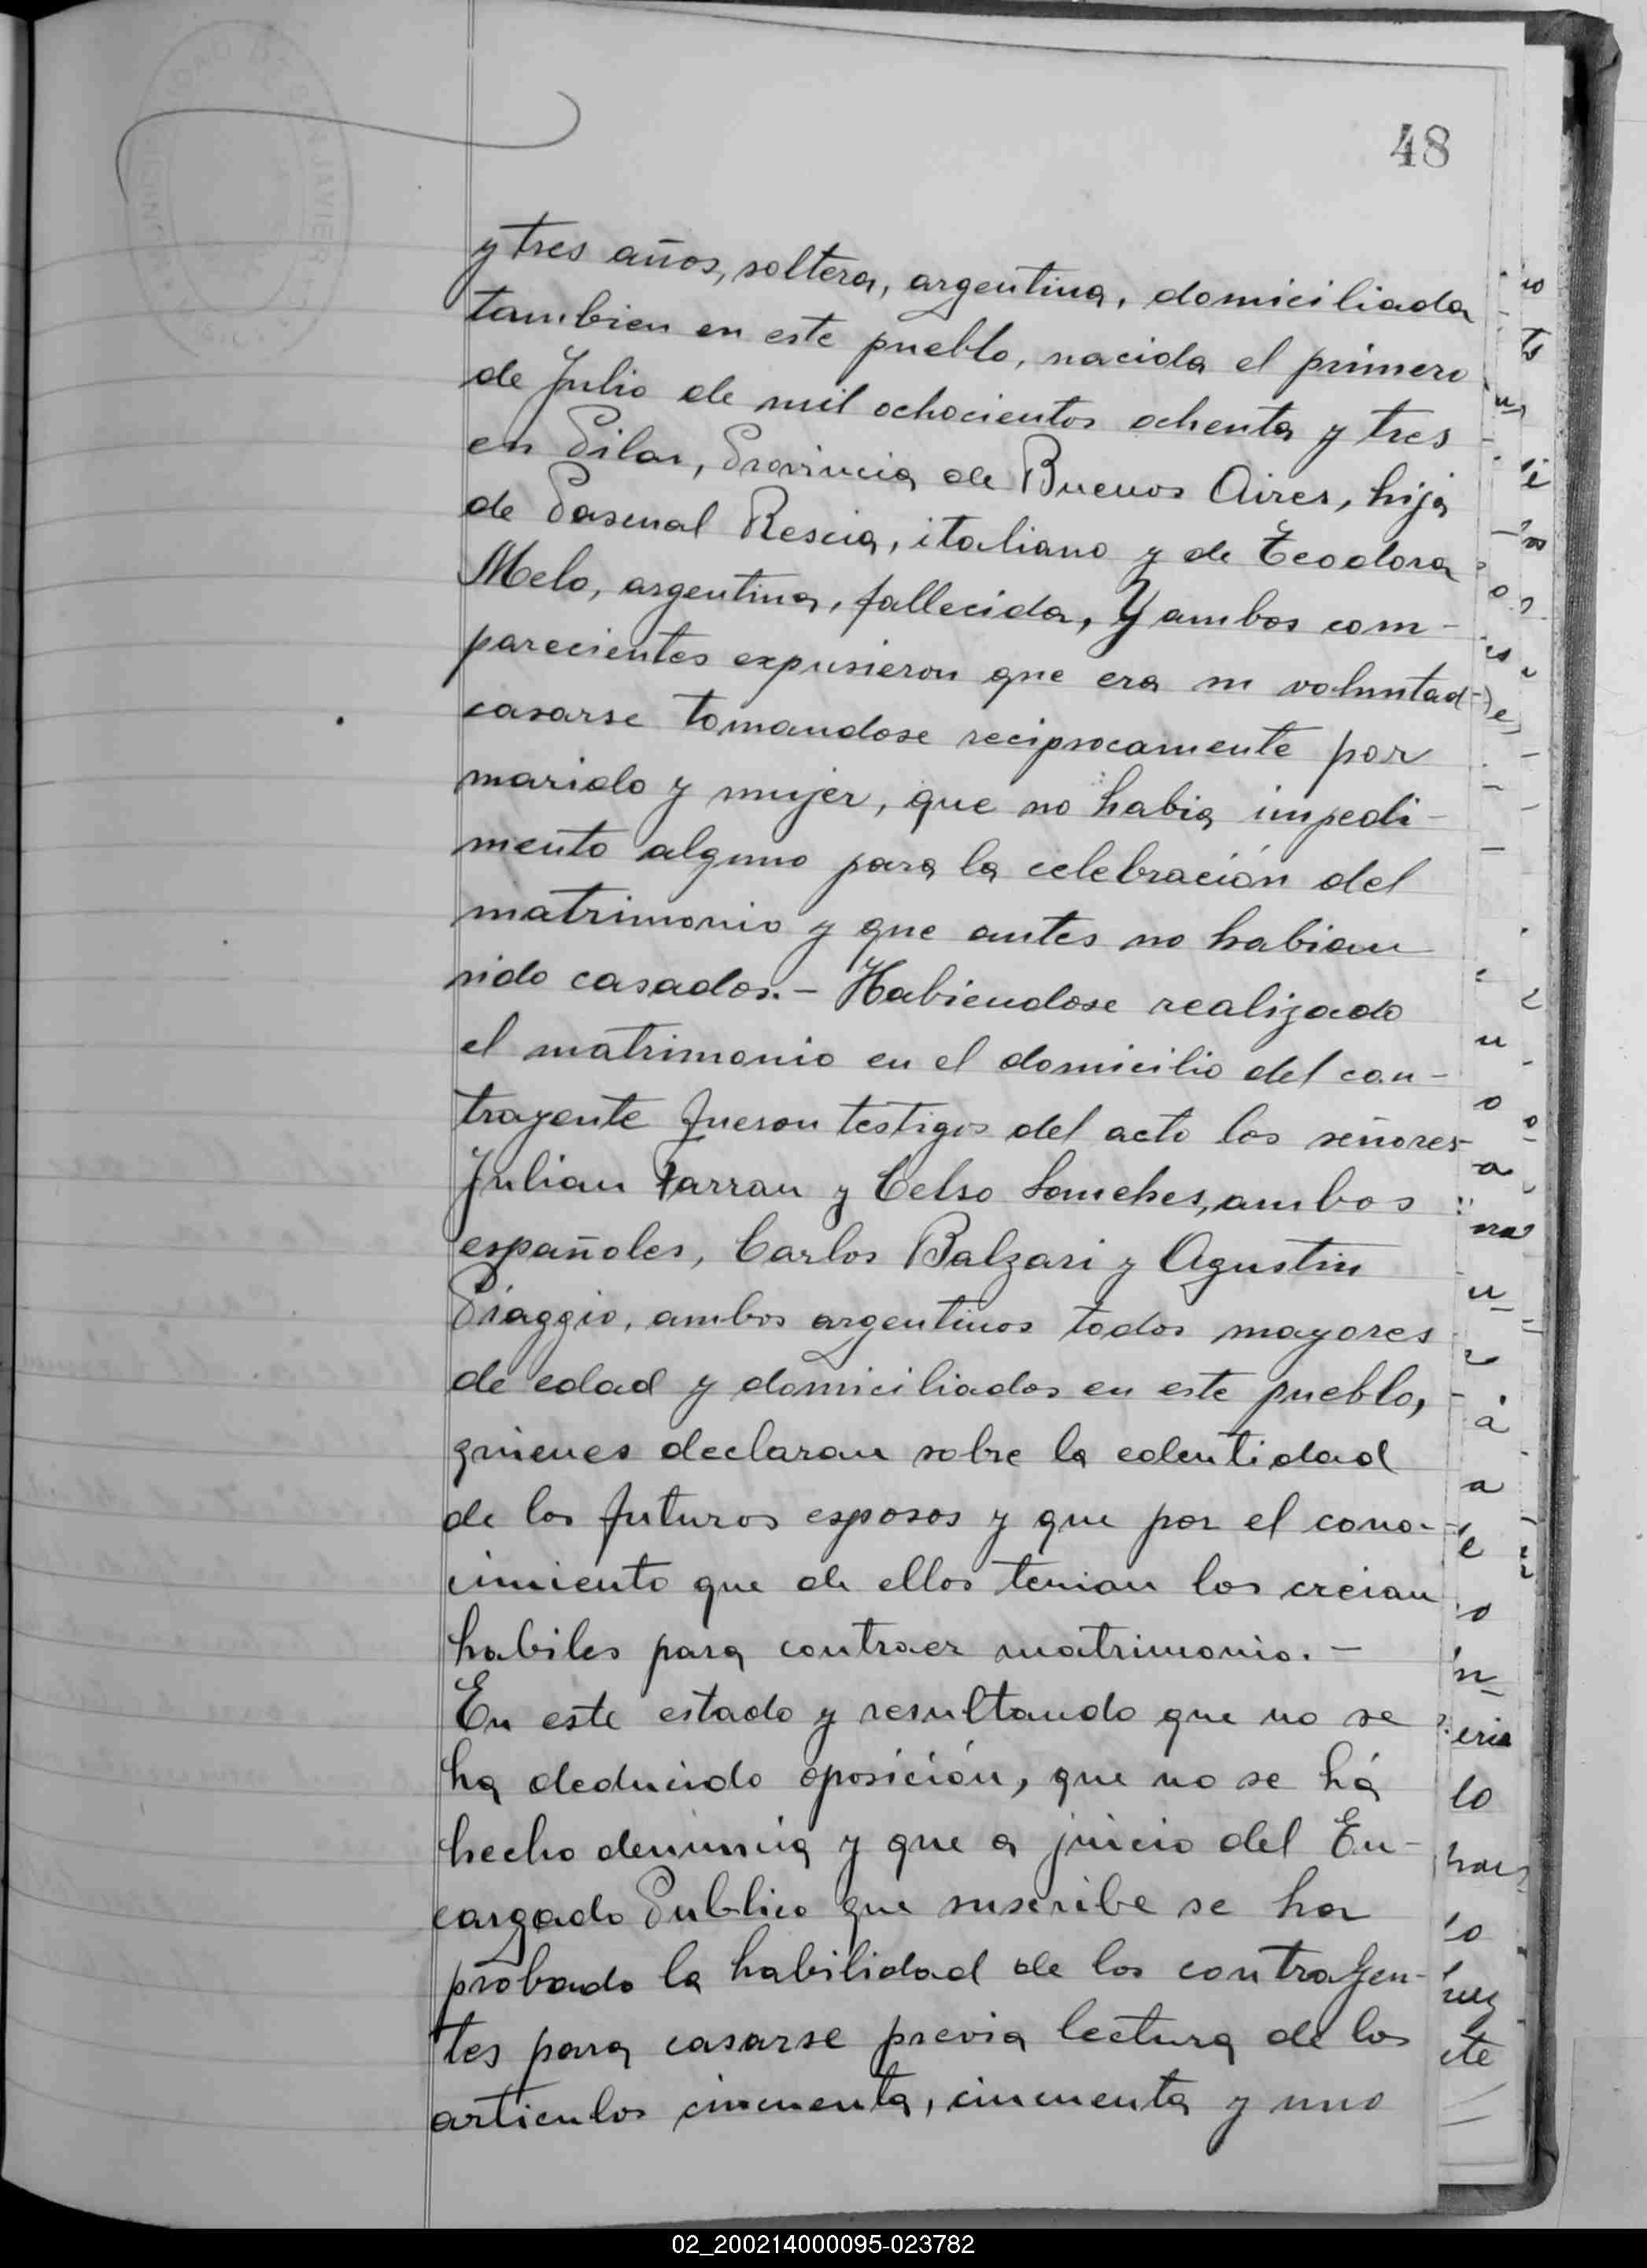 48
y tres años, soltera, argentina, domiciliada
tambien en este pueblo, nacida el primero
de Julio de mil ochocientos ochenta y tres
en Pilar, Provincia de Buenos Aires, hija
de Pascual Rescia, italiano y de Teodora
Melo, argentina, fallecida, Y ambos com-
parecientes expusieron que era su voluntad
casarse tomandose reciprocamente por
marido y mujer, que no habia impedi-
mento alguno para la celebración del
matrimonio y que antes no habian
sido casados.- Habiendose realizado
el matrimonio en el domicilio del con-
trayente fueron testigos del acto los señores
Julian Farran y Celso Sanches, ambos
españoles, Carlos Balzari y Agustin
Piaggio, ambos argentinos todos mayores
de edad y domiciliados en este pueblo,
quienes declaran sobre la edentidad
de los futuros esposos y que por el cono-
cimiento que de ellos tenian los creian
habiles para contraer matrimonio. -
En este estado y resultando que no se
ha deducido oposición, que no se há
hecho denuncia y que a juicio del En-
cargado Publico que suscribe se ha
probado la habilidad de los contrayen-
tes para casarse previa lectura de los
articulos cincuenta, cincuenta y uno
02_200214000095-023782